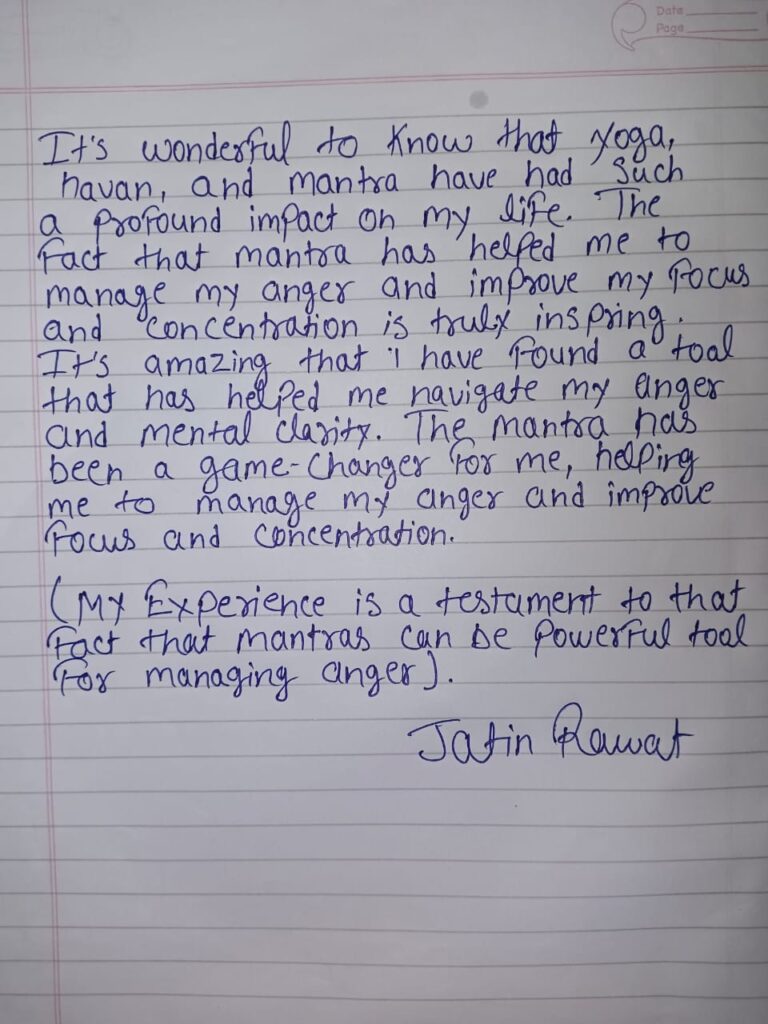 Date
Page
It's wonderful to know that yoga,
havan, and mantra have had such
a profound impact on my life. The
fact that mantra has helped me to
manage my anger and improve my focus
and concentration is truly inspring.
It's amazing that i have found a toal
that has helped me navigate my anger
and mental clarity. The mantra has
been a game-changer for me, helping
me to manage my anger and improve
focus and concentration.
(My Experience is a testament to that
fact that mantras can be powerful tool
for managing anger).
Jatin Rawat